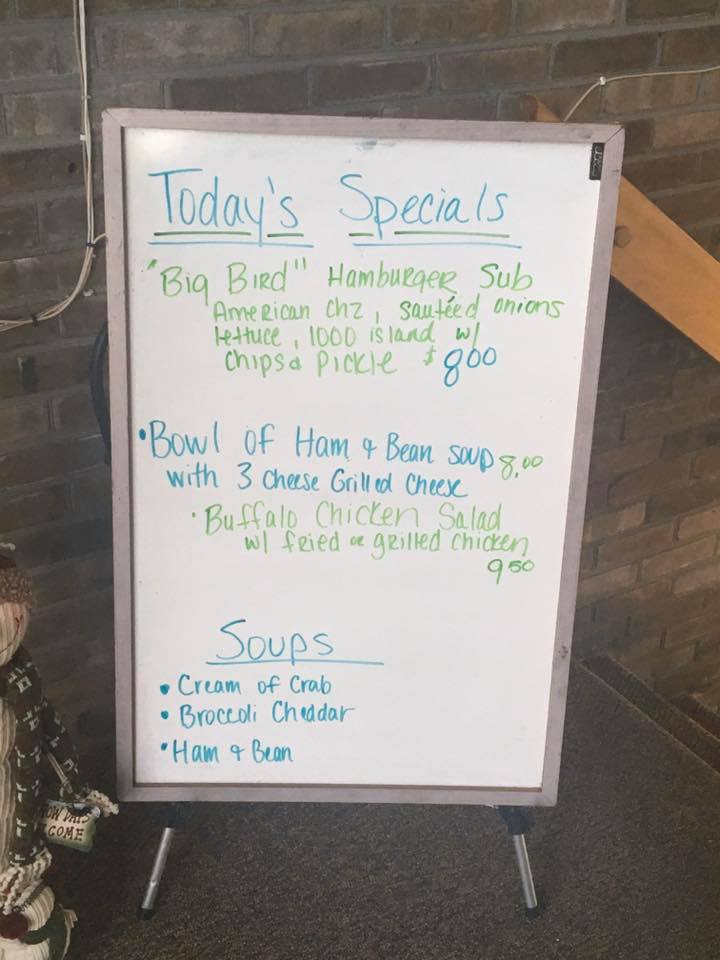 Today's Specials
"Big Bird" Hamburger Sub
American chz, sautéed onions
lettuce, 1000 island w/
chips & Pickle $800
•Bowl of Ham & Bean soup 8.00
with 3 cheese Grilled Cheese
•Buffalo Chicken Salad
w/ fried or grilled chicken
950
Soups
•Cream of Crab
•Broccoli Cheddar
•Ham & Bean
COME